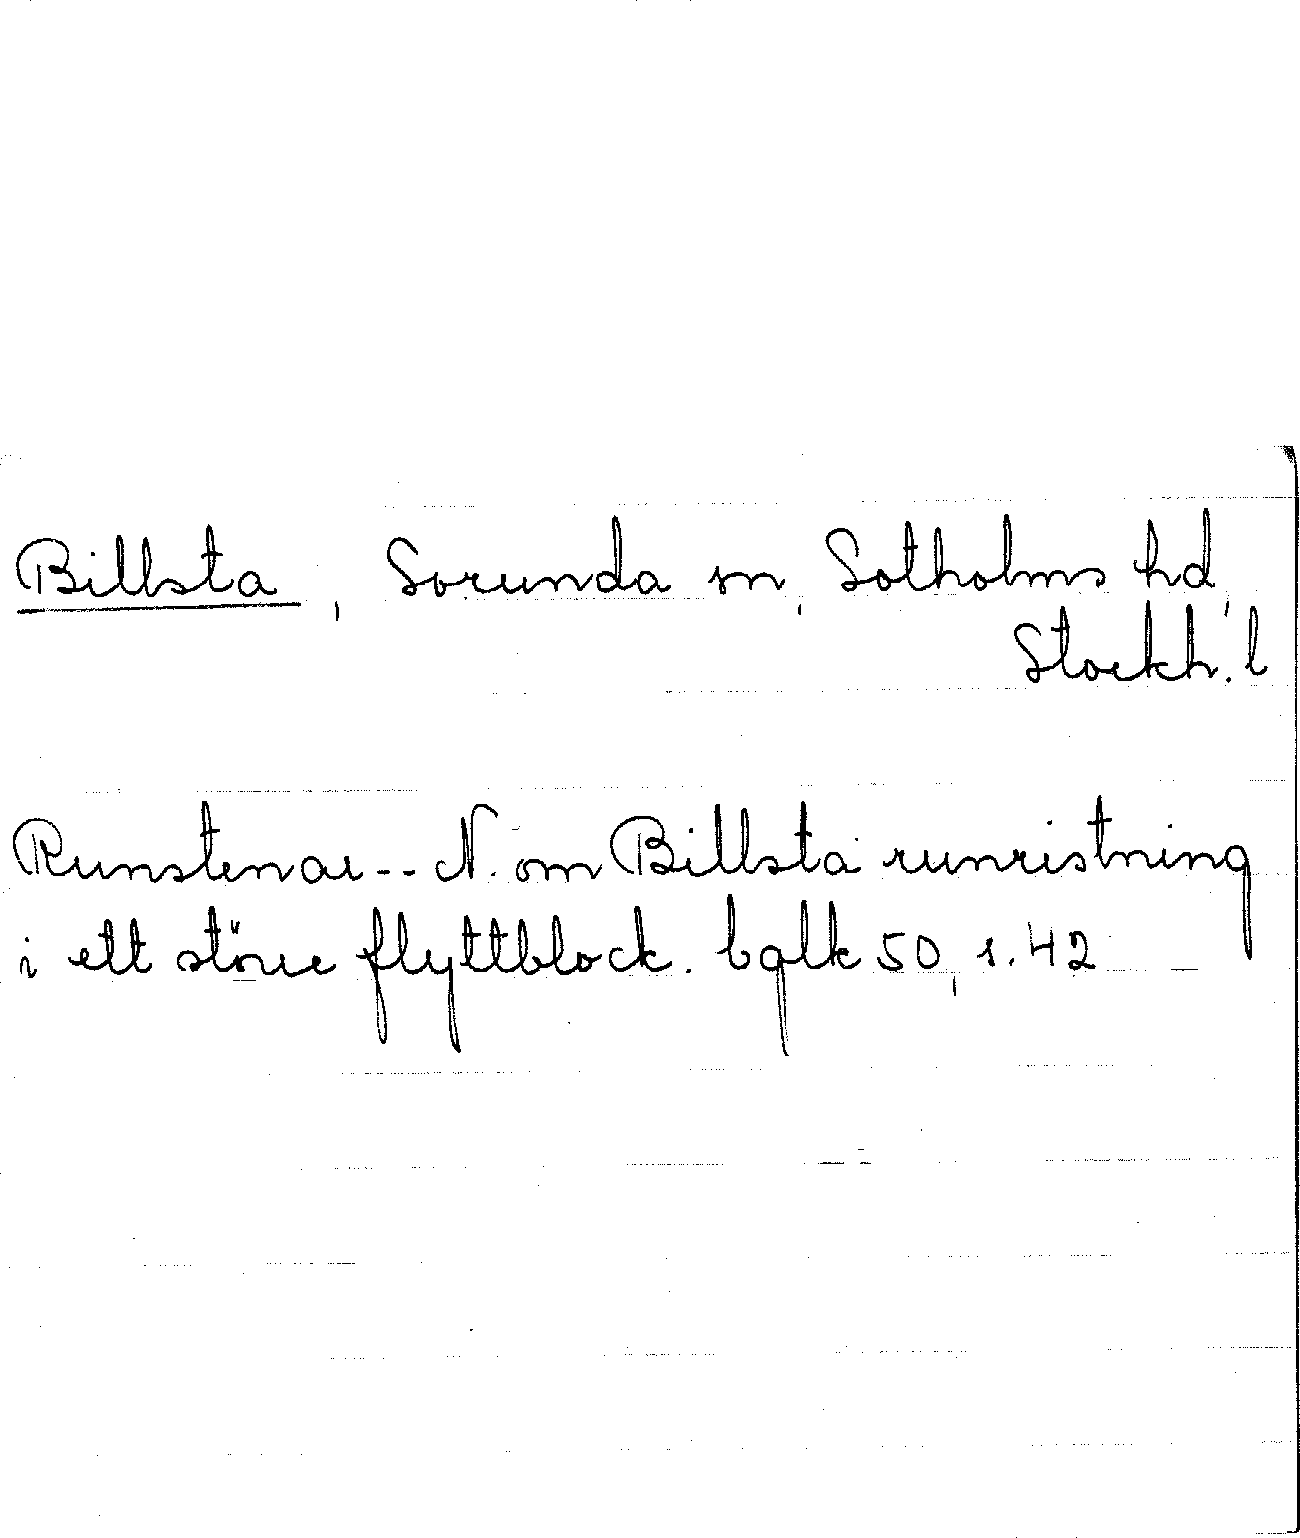 Billsta, Sorunda sn, Sotholms hd,
Stockh. l
Runstenar -- N. om Billsta runristning
i ett större flyttblock. bqlk 50, s. 42